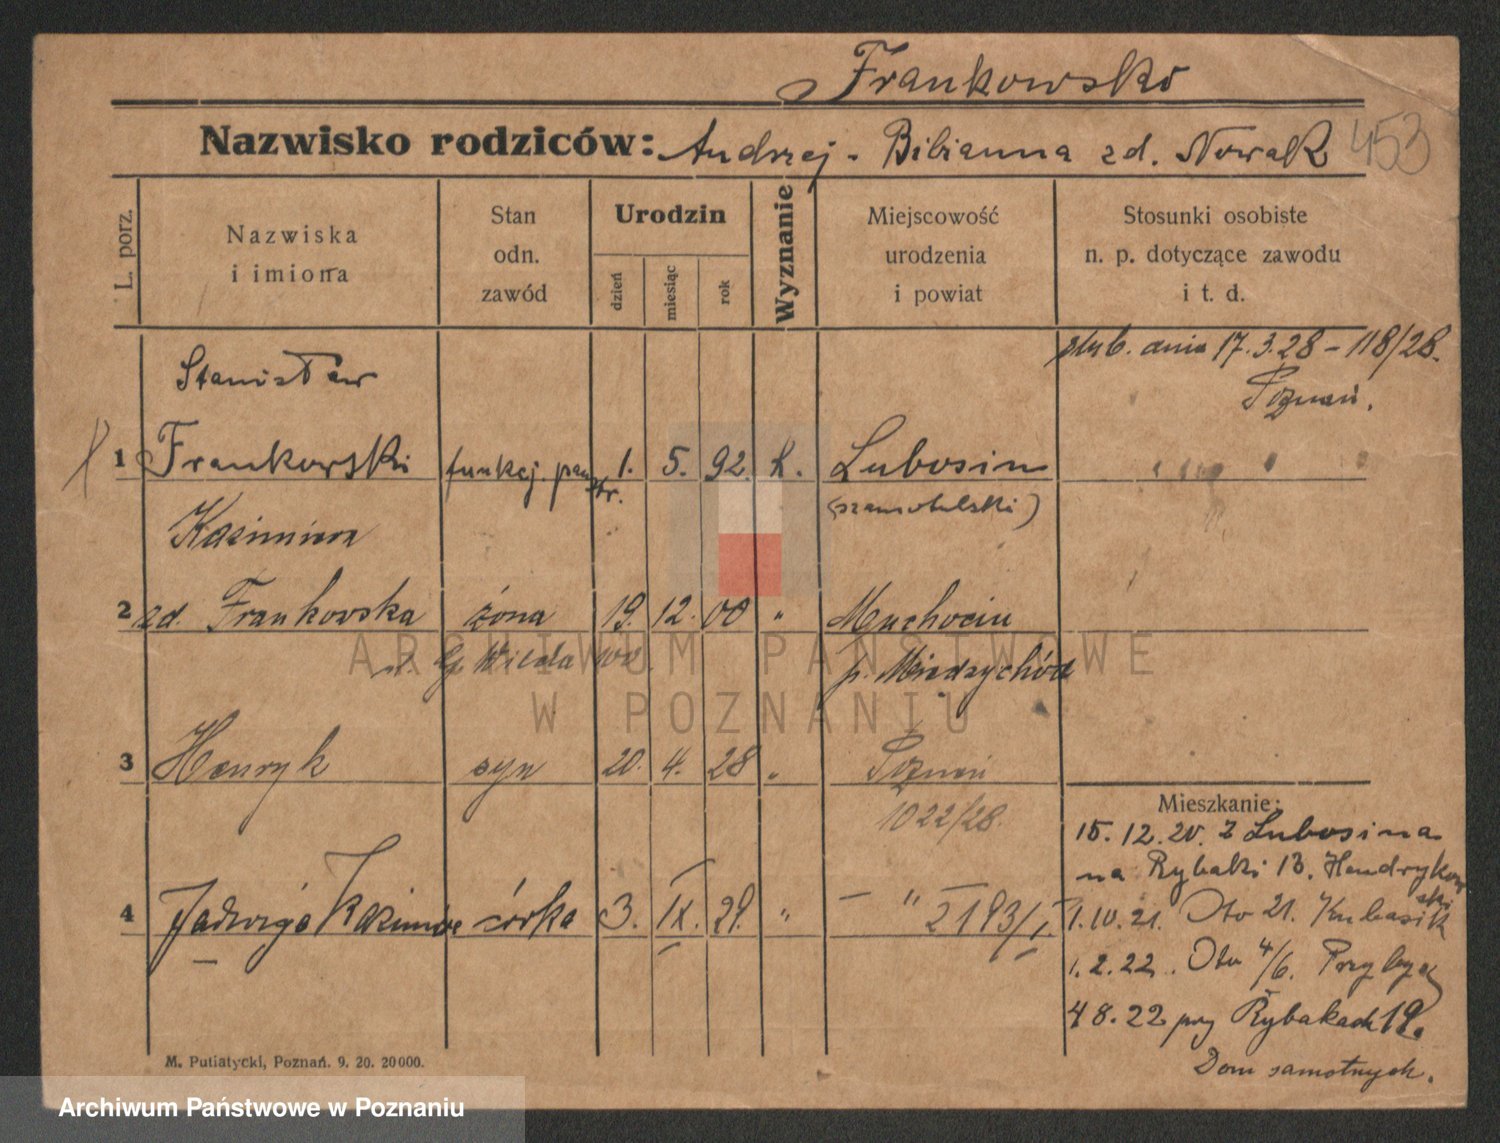 Frankowski
Nazwisko rodziców: Andrzej - Bibianna zd. Nowak 453
L. porz.
Nazwiska
i imiona
Stan
odn.
zawód
Urodzin
dzień
miesiąc
rok
Wyznanie
Miejscowość
urodzenia
i powiat
Stosunki osobiste
n. p. dotyczące zawodu
i t. d.
ślub. dnia 17.3.28 - 118/28.
Poznań.
Stanisław
1 Frankowski funkcj. 1. 5. 92. k. Lubosin
(szamotulski)
Kazimiera
2 zd. Frankowska żona 19. 12. 00 " Muchocin
Wilda p. Międzychód
3 Henryk syn 20. 4. 28 " Poznań
1022/28.
4 Jadwiga Kazimiera córka 3. IX. 29. " - " 2193/I
Mieszkanie:
15.12.20. z Lubosina
na Rybaki 13. Hendrykowski
1.10.21. Oto 21. Kubasik
1.2.22. Oto 4/6. Przybył
4 8.22 przy Rybakach 19.
Dom samotnych.
M. Putiatycki, Poznań. 9. 20. 20000.
ARCHIWUM PAŃSTWOWE
W POZNANIU
Archiwum Państwowe w Poznaniu